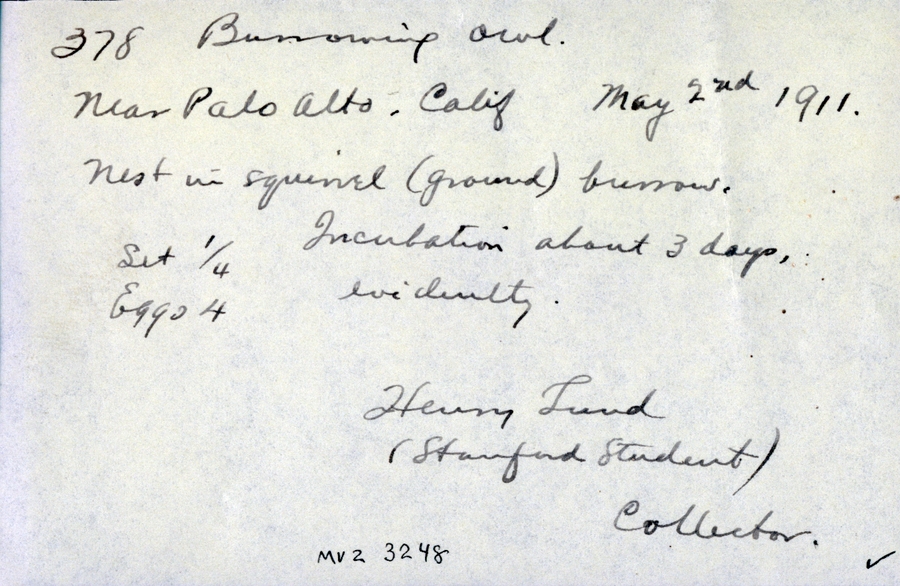 378 Burrowing Owl.
Near Palo Alto, Calif May 2nd 1911.
Nest in squirrel (ground) burrow.
Set 1/4 Incubation about 3 days,
Eggs 4 evidently.
Henry Lund
(Stanford Student)
Collector.
MVZ 3248